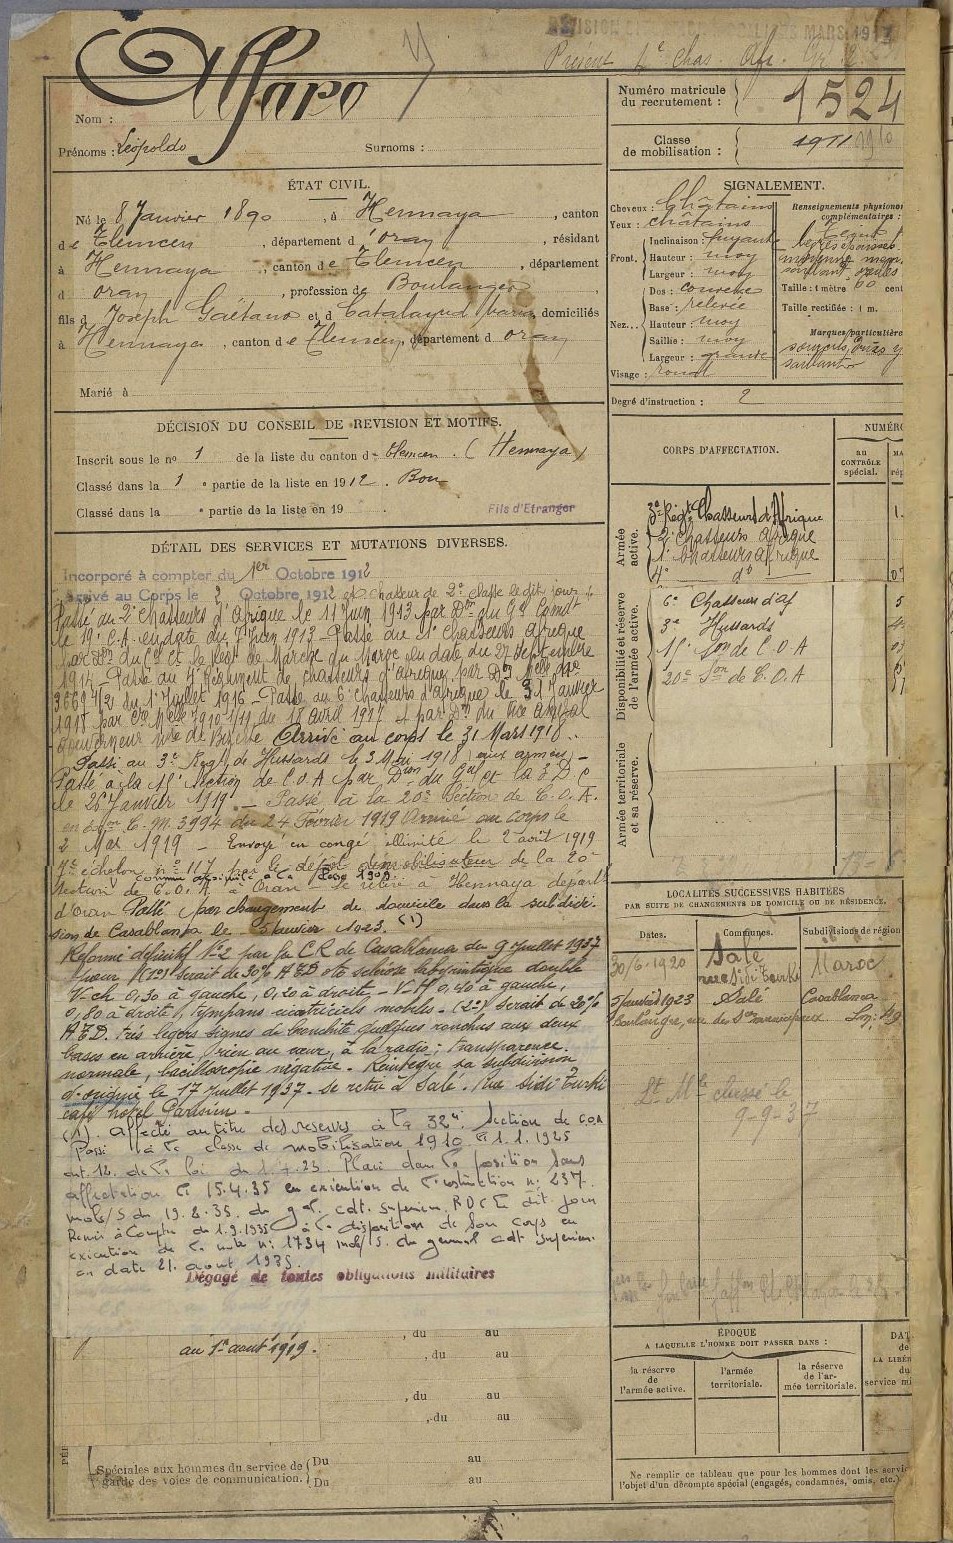 MARS 19
Présent 4e Chas. Afr.
Alfaro
Nom :
Prénoms : Léopoldo Surnoms :
Numéro matricule du recrutement : 1524
Classe de mobilisation : 1911 1910
ÉTAT CIVIL.
Né le 8 Janvier 1890, à Hennaya, canton
de Tlemcen, département d'oran, résidant
à Hennaya, canton de Tlemcen, département
d oran, profession de Boulanger
fils d Joseph Gaëtano et d Catalayud Maria, domiciliés
à Hennaya, canton de Tlemcen, département d oran
Marié à
SIGNALEMENT.
Cheveux : Châtains
Yeux : châtains
Front. Inclinaison : fuyante
Hauteur : moy
Largeur : moy
Nez... Dos : convexe
Base : relevée
Hauteur : moy
Saillie : moy
Largeur : grande
Visage : rond
Renseignements physiono
complémentaires :
Teint
Taille : 1 mètre 60 cent
Taille rectifiée : 1 m.
Marques particulière
Degré d'instruction : 2
DÉCISION DU CONSEIL DE REVISION ET MOTIFS.
Inscrit sous le no 1 de la liste du canton de tlemcen. (Hennaya)
Classé dans la 1 e partie de la liste en 1912. Bon
Classé dans la e partie de la liste en 19 .
Fils d'Etranger
DÉTAIL DES SERVICES ET MUTATIONS DIVERSES.
Incorporé à compter du 1er Octobre 1912
Arrivé au Corps le 2 Octobre 1912 et Chasseur de 2e classe le dit jour
Passé au 2e Chasseurs d'Afrique le 11 Juin 1913 par Don du Gal Comdt
le 19e C.A. en date du 7 Juin 1913 - Passé au 1e Chasseurs Afrique
par Don du Cel Ct le Régt de Marche du Maroc en date du 27 septembre
1914 - Passé au 4e Régiment de chasseurs d'Afrique par Don Melle No
3668 4/21 du 1er Juillet 1916 - Passé au 6e Chasseurs d'Afrique le 31 Janvier
1918 par Don Melle 7910-1/11 du 18 avril 1917 et par Don du Vice Amiral
Gouverneur de Bizerte Arrivé au corps le 31 Mars 1918.
Passé au 3e Régt de Hussards le 3 Mai 1918 aux armées -
Passé à la 15e Section de C.O.A par Don du Gal Ct la 2e D.C
le 26 Janvier 1919 - Passé à la 20e Section de C.O.A.
en Don C.M. 3994 du 24 Février 1919 Arrivé au Corps le
2 Mai 1919 - Envoyé en congé illimité le 2 août 1919
7e échelon no 117 par le dépôt démobilisateur de la 20e
Section de C.O.A. à Oran - se retire à Hennaya départt
d'Oran Passé par changement de domicile dans la subdivi-
sion de Casablanca le 5 Janvier 1923. (1)
Réformé définitif No 2 par la C R de Casablanca du 9 Juillet 1937
pour (1o) serait de 30% A.E.D oto sclérose labyrinthique double
V-ch 0,30 à gauche, 0,20 à droite - V.H 0,40 à gauche,
0,80 à droite, tympans cicatriciels mobiles - (2o) serait de 20%
A.E.D. très légers signes de bronchite quelques ronchus aux deux
bases en arrière, rien au cœur, à la radio : transparence
normale, bacilloscopie négative - Réintègre sa subdivision
d'origine le 17 Juillet 1937 - se retire à Salé. Rue Sidi Turki
café hotel Parisien -
(1). Affecté au titre des réserves à la 32e Section de C.O.A
Passé à la classe de mobilisation 1910 le 1.1.1925
art. 12. de la loi du 1.4.23. Placé dans la position sans
affectation le 15.4.35 en exécution de l'instruction no 237
mob/S du 19.2.35. du gal cdt. supérieur
Remis à Compter du 1.9.1935 à la disposition de son corps en
exécution de la note no 1734 mob/S. du general cdt supérieur
en date 21. aout 1935.
Dégagé de toutes obligations militaires
au 1er aout 1919.
, du au
, du au
, du au
, du au
Spéciales aux hommes du service de
garde des voies de communication.
Du au
Du au
CORPS D'AFFECTATION.
NUMÉRO
au CONTRÔLE spécial.
Armée active.
3e Régt Chasseurs d'Afrique
2e Chasseurs Afrique
1e Chasseurs afrique
4e do
Disponibilité et réserve de l'armée active.
6e Chasseurs d'Af
3e Hussards
15e Son de C.O.A
20e Son de C.O.A
Armée territoriale et sa réserve.
LOCALITÉS SUCCESSIVES HABITÉES
PAR SUITE DE CHANGEMENTS DE DOMICILE OU DE RÉSIDENCE.
Dates. Communes. Subdivisions de région
30/6-1920 Salé Maroc
rue Sidi Turki
5 Janvier 1923 Salé Casablanca
classé le
9-9-37
ÉPOQUE
A LAQUELLE L'HOMME DOIT PASSER DANS :
la réserve de l'armée active.
l'armée territoriale.
la réserve de l'ar-
mée territoriale.
DAT
de
LA LIBÉR
du
service mi
Ne remplir ce tableau que pour les hommes dont les servic
l'objet d'un décompte spécial (engagés, condamnés, omis, etc.)